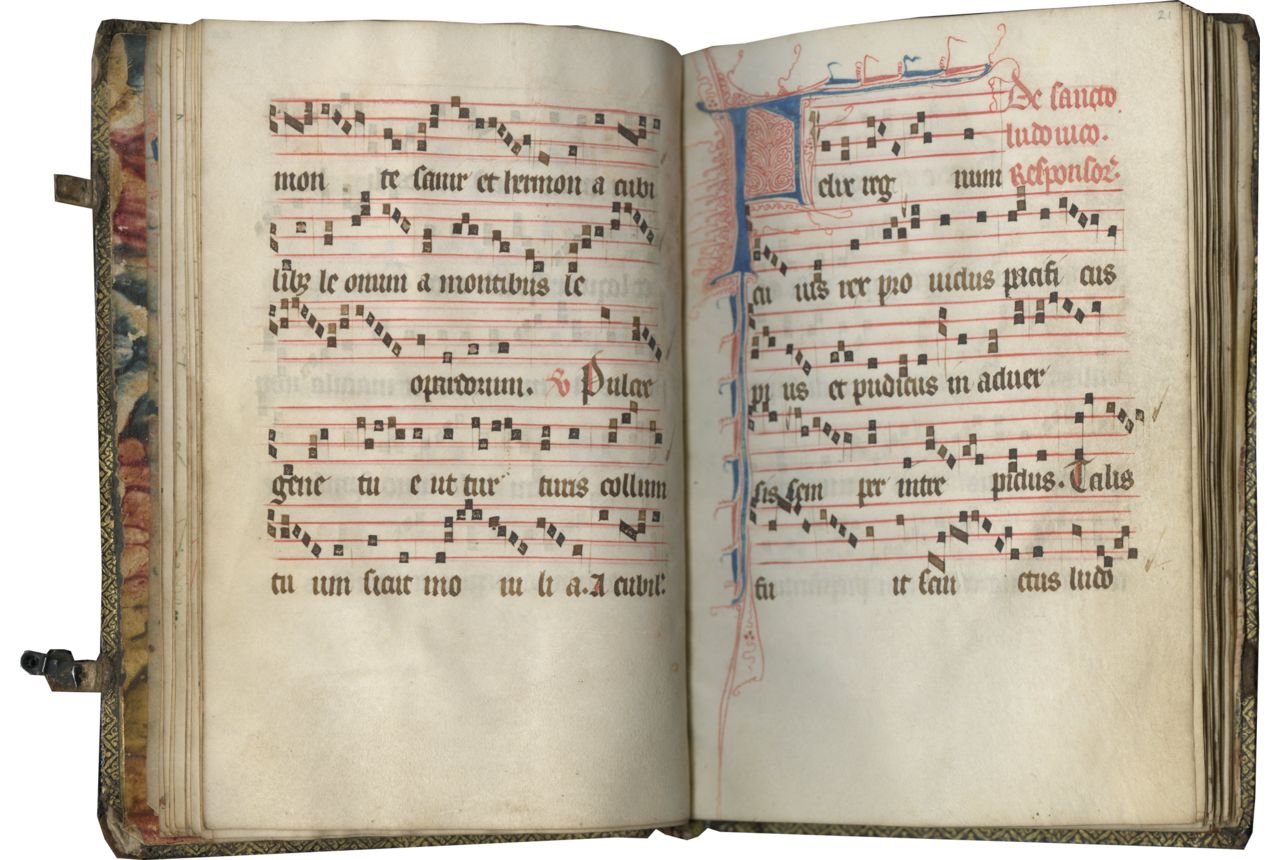 mon te sanir et hermon a cubi
lib9 le onum a montibus le
opardorum. V Pulcre
gene tu e ut tur turis collum
tu um sicut mo ni li a. A cubil'.
21
De sancto
ludouico.
Responsor'.
Felix reg num
cu ius rex pro uidus pacifi cus
pi us et pudicus in aduer
sis sem per intre pidus. Talis
fu it san ctus ludo